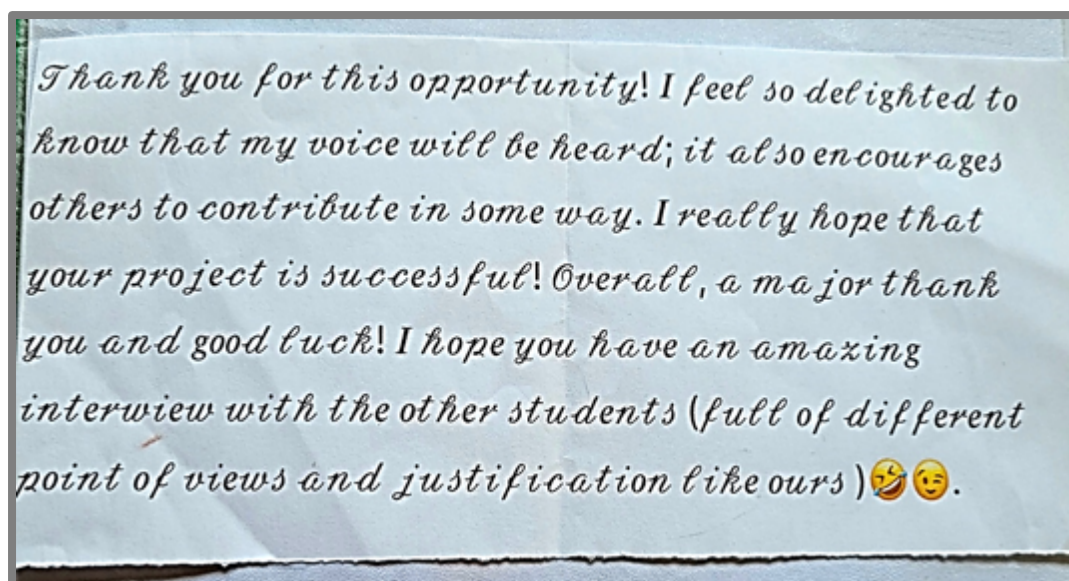 Thank you for this opportunity! I feel so delighted to
know that my voice will be heard; it also encourages
others to contribute in some way. I really hope that
your project is successful! Overall, a major thank
you and good luck! I hope you have an amazing
interwiew with the other students (full of different
point of views and justification like ours)🤣😉.